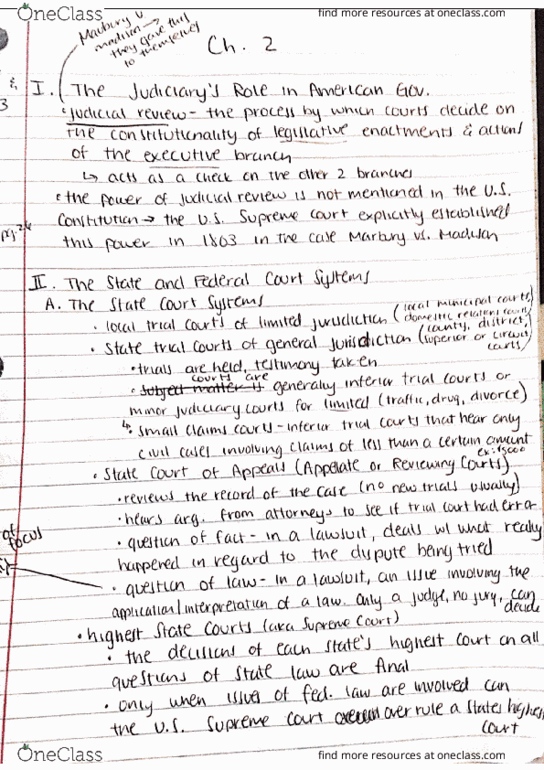 OneClass
find more resources at oneclass.com
Marbury v
madison →
they gave this
to themselves
Ch. 2
I. The Judiciary's Role in American Gov.
judicial review - the process by which courts decide on
the constitutionality of legislative enactments & actions
of the executive branch
↳ acts as a check on the other 2 branches
• the power of judicial review is not mentioned in the U.S.
Constitution → the U.S. Supreme Court explicitly established
this power in 1803 in the case Marbury vs. Madison
II. The State and Federal Court Systems
A. The State Court Systems
• local trial courts of limited jurisdiction (local municipal courts, domestic relations courts)
• State trial courts of general jurisdiction (county, district, superior or circuit courts)
• trials are held, testimony taken
• subject matter is courts are generally inferior trial courts or
minor judiciary courts for limited (traffic, drug, divorce)
↳ small claims courts - inferior trial courts that hear only
civil cases involving claims of less than a certain amount
ex: $5000
• State Court of Appeals (Appelate or Reviewing Courts)
• reviews the record of the case (no new trials usually)
• hears arg. from attorneys to see if trial court had error
• question of fact - in a lawsuit, deals w/ what really
happened in regard to the dispute being tried
of
focus
• question of law - in a lawsuit, an issue involving the
application/interpretation of a law. Only a judge, no jury, can
decide
• highest State Courts (aka Supreme Court)
• the decisions of each state's highest court on all
questions of state law are final
• only when issues of fed. law are involved can
the U.S. Supreme Court overrule a states highest
court
OneClass
find more resources at oneclass.com